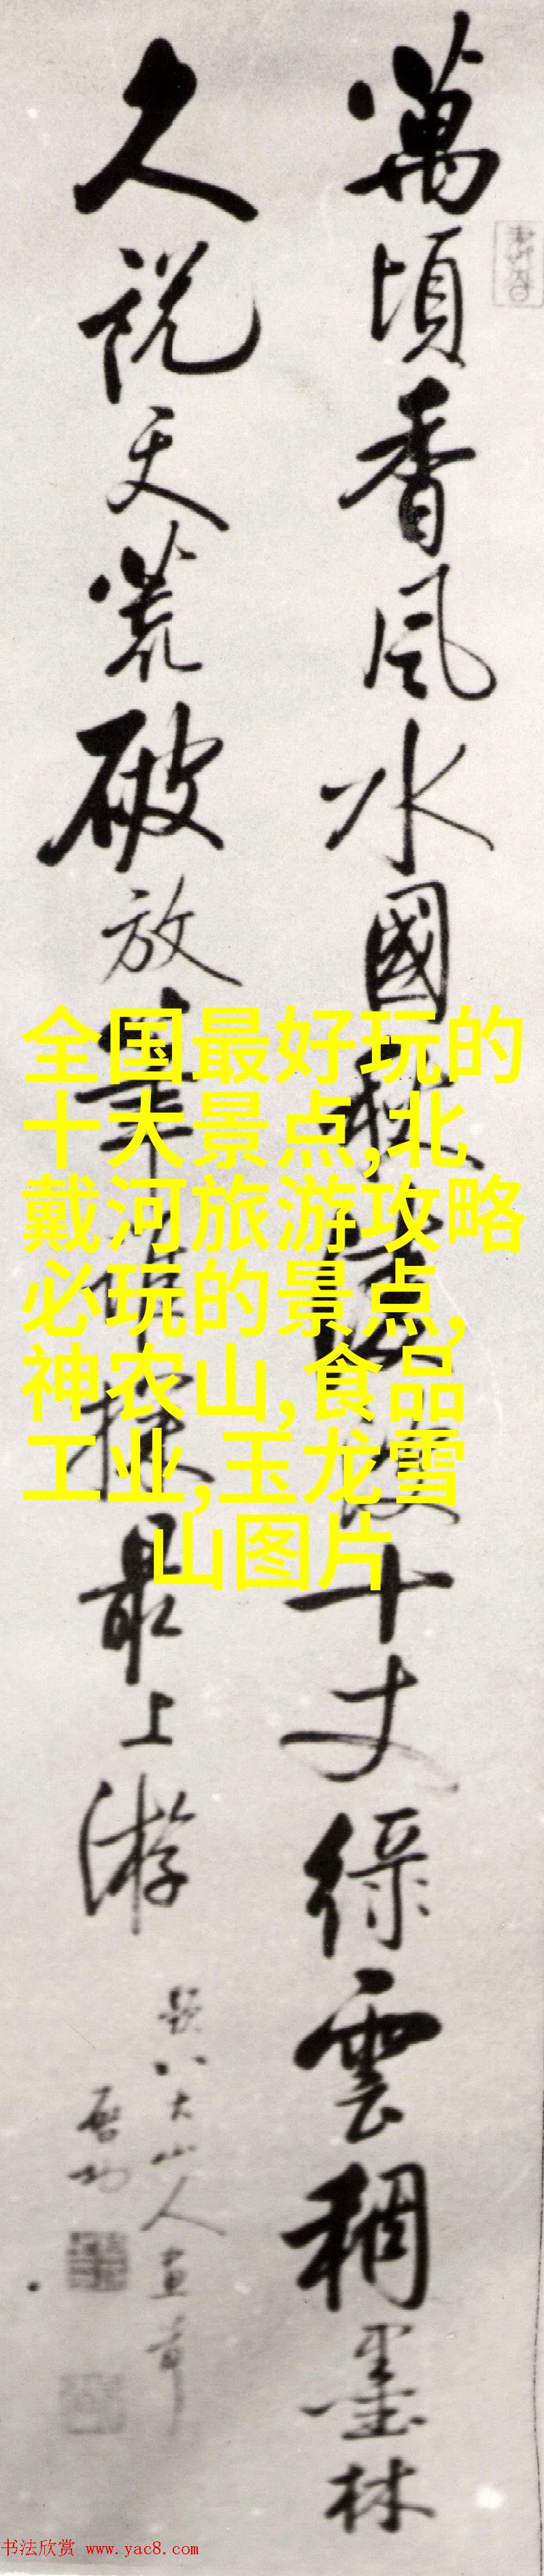 萬頃香風水國秋十丈綠雲稠墨林
久說天荒破放筆誰探最上游
題八大山人畫
啓功
全国最好玩的
十大景点,北
戴河旅游攻略
必玩的景点,
神农山,食品
工业,玉龙雪
山图片
书法欣赏 www.yac8.com